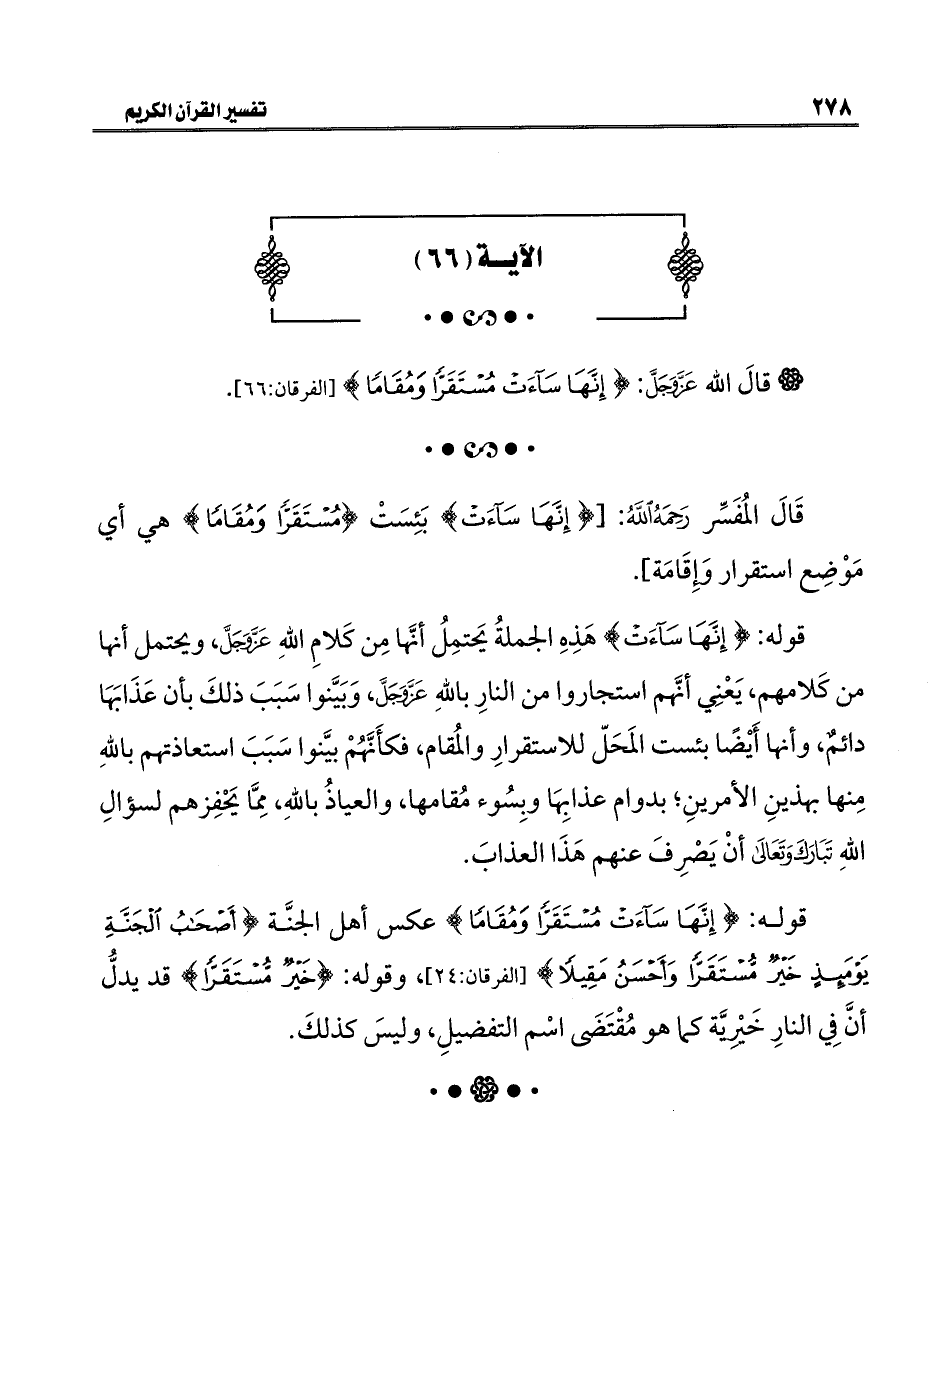 ٢٧٨ تفسير القرآن الكريم
الآيـــة (٦٦)
قالَ الله عَزَّوَجَلَّ: ﴿ إِنَّهَا سَآءَتْ مُسْتَقَرًّا وَمُقَامًا ﴾ [الفرقان:٦٦].
قَالَ المُفَسِّر رَحِمَهُ ٱللَّهُ: [﴿ إِنَّهَا سَآءَتْ ﴾ بَئِسَتْ ﴿مُسْتَقَرًّا وَمُقَامًا ﴾ هي أي
مَوْضِع استقرار وَإِقَامَة].
قوله: ﴿ إِنَّهَا سَآءَتْ ﴾ هَذِهِ الجملةُ يَحتمِلُ أنَّها مِن كَلامِ اللهِ عَزَّوَجَلَّ، ويحتمل أنها
من كَلامهم، يَعْنِي أنَّهم استجاروا من النارِ باللهِ عَزَّوَجَلَّ، وَبَيَّنوا سَبَبَ ذلكَ بأن عَذَابَهَا
دائمٌ، وأنها أَيْضًا بئست المَحَلّ للاستقرارِ والمُقام، فكأنَّهُمْ بيَّنوا سَبَبَ استعاذتهم باللهِ
مِنها بهذينِ الأمرينِ؛ بدوام عذابِهَا وبِسُوء مُقامها، والعياذُ باللهِ، مِمَّا يَحْفِزهم لسؤالِ
اللهِ تَبَارَكَ وَتَعَالَى أنْ يَصْرِفَ عنهم هَذَا العذابَ.
قولـه: ﴿ إِنَّهَا سَآءَتْ مُسْتَقَرًّا وَمُقَامًا ﴾ عكس أهل الجنَّـة ﴿ أَصْحَٰبُ ٱلْجَنَّةِ
يَوْمَئِذٍ خَيْرٌ مُّسْتَقَرًّا وَأَحْسَنُ مَقِيلًا ﴾ [الفرقان:٢٤]، وقوله: ﴿خَيْرٌ مُّسْتَقَرًّا ﴾ قد يدلُّ
أنَّ فِي النارِ خَيْرِيَّة كما هو مُقْتَضَى اسْم التفضيلِ، وليسَ كذلكَ.